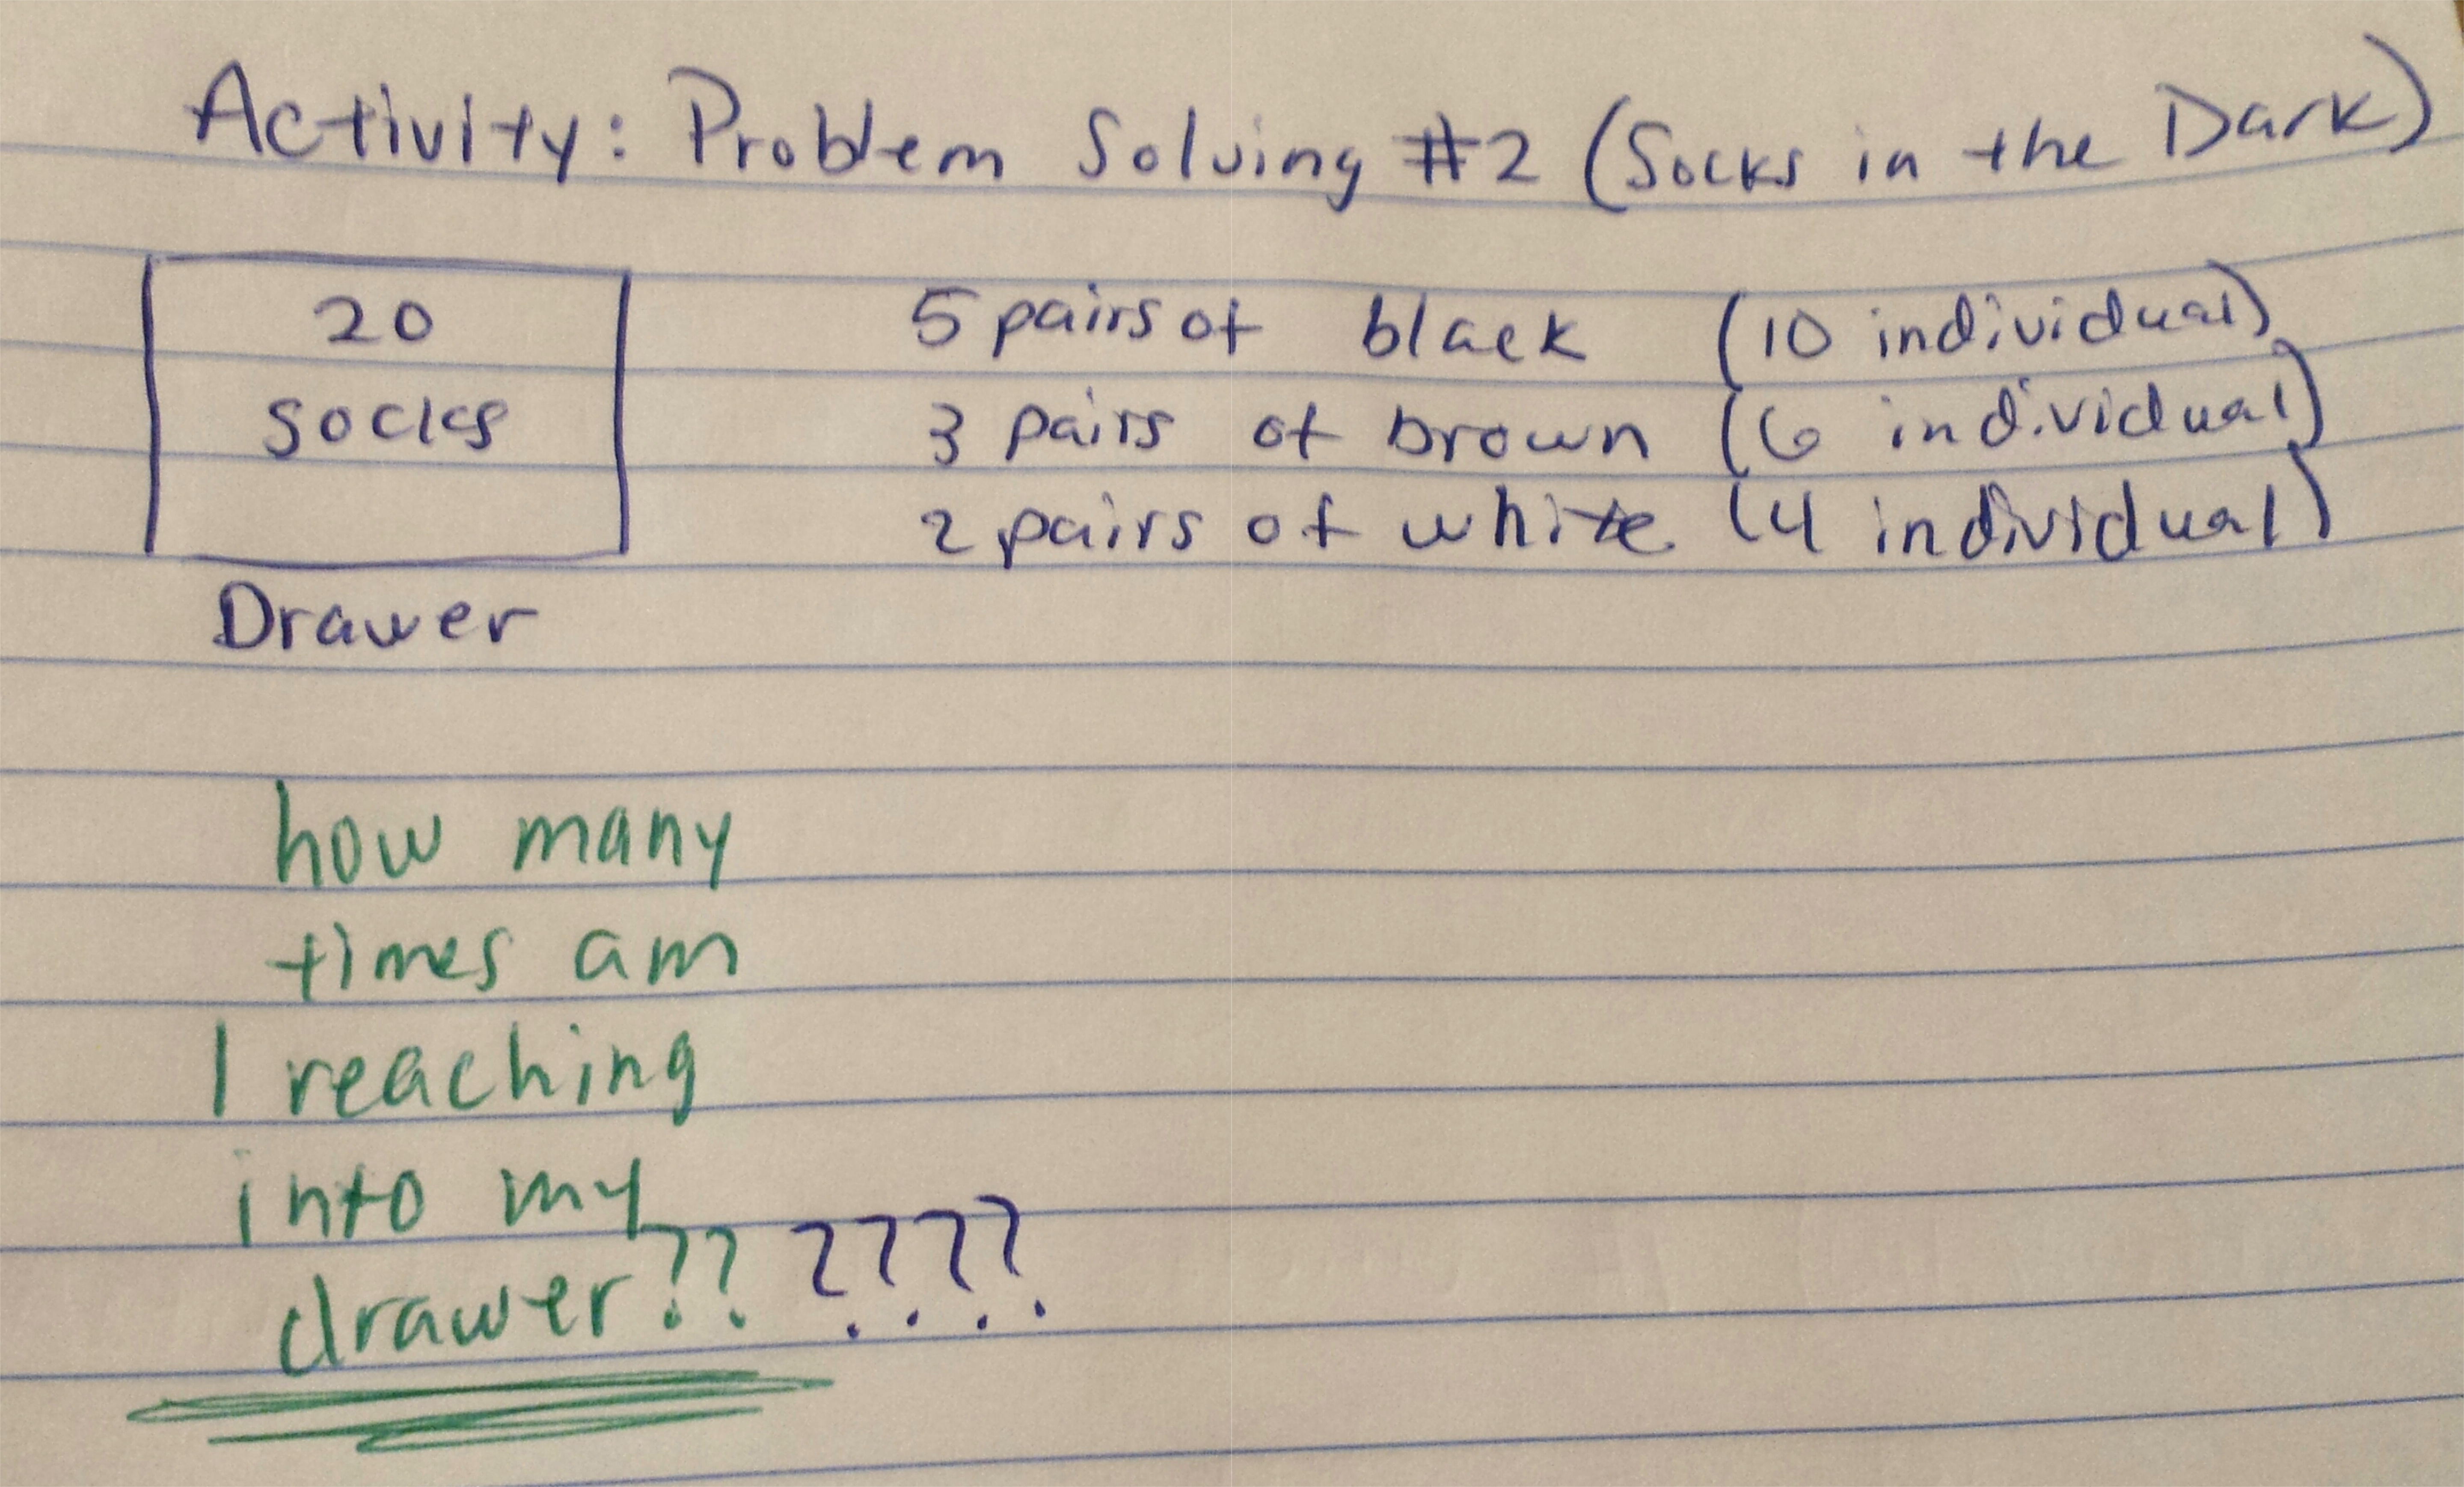 Activity: Problem Solving #2 (Socks in the Dark)
20
socks
Drawer
5 pairs of black (10 individual)
3 pairs of brown (6 individual)
2 pairs of white (4 individual)
how many
times am
I reaching
into my
drawer?? ????